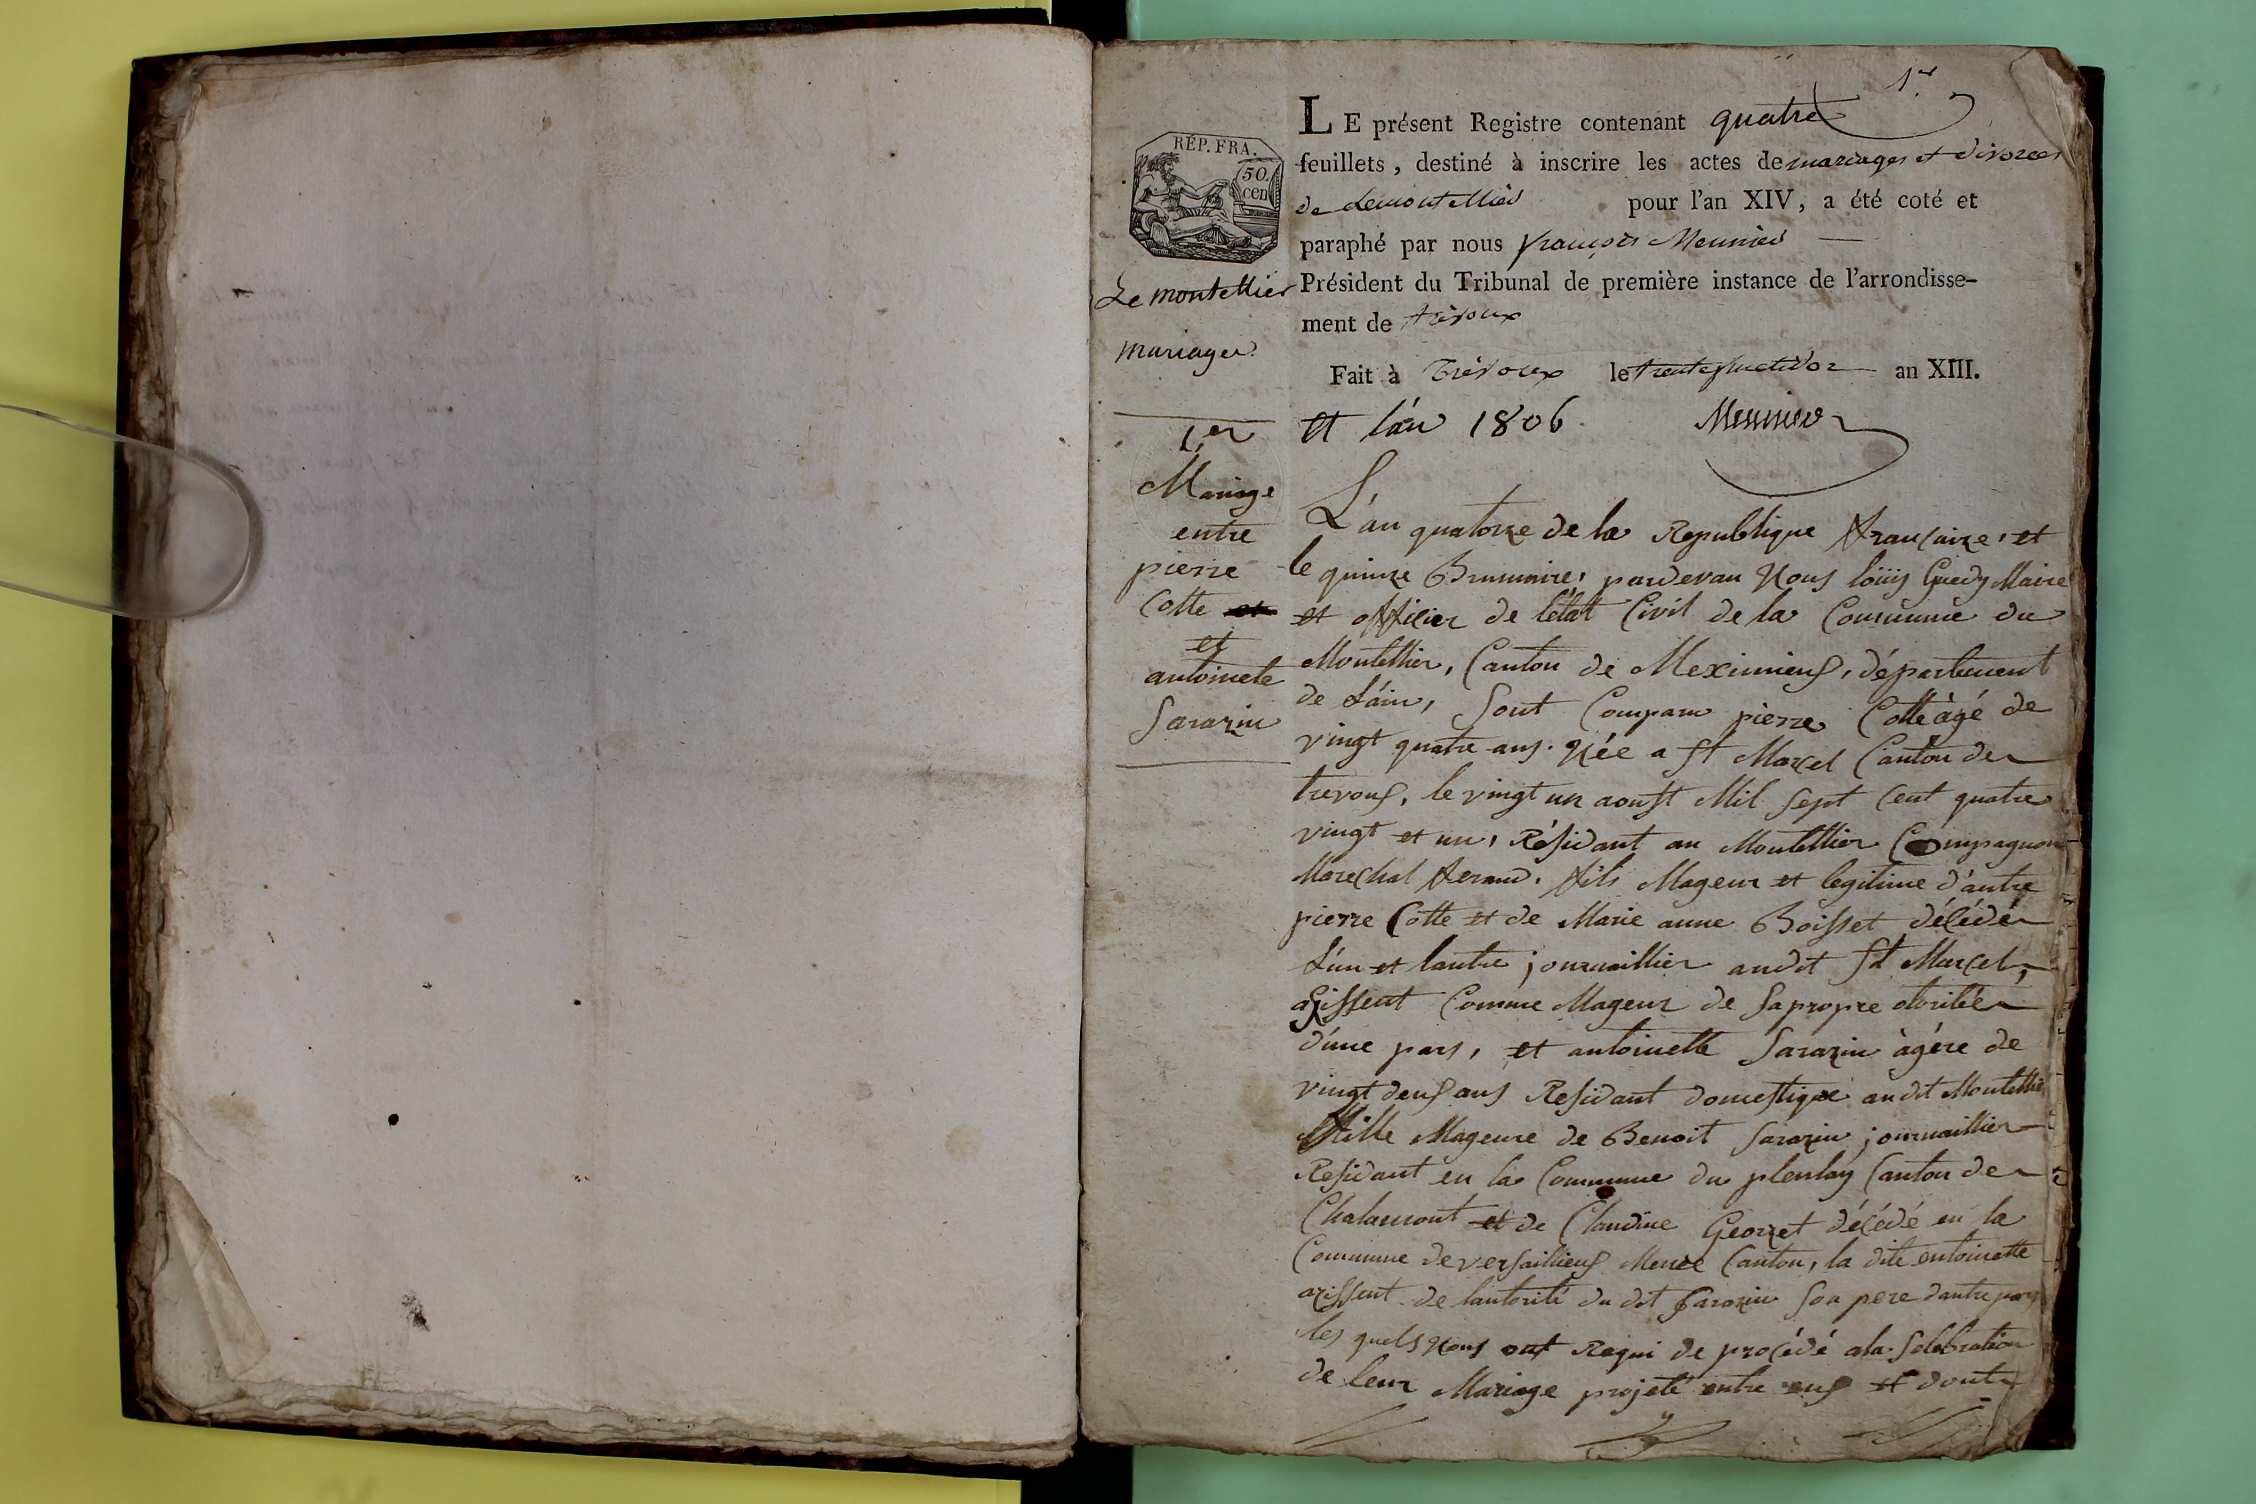 1.er
LE présent Registre contenant quatre
feuillets, destiné à inscrire les actes de mariages et divorces
de Lemontellier pour l'an XIV, a été coté et
paraphé par nous françois Meunier —
Président du Tribunal de première instance de l'arrondisse-
ment de trévoux
Fait à Trévoux le trente fructidor an XIII.
et l'án 1806. Meunier
RÉP. FRA.
50.
cen
Le montellier
mariages
1.er
Mariage
entre
pierre
Cotte et
et
antoinete
Sarazin
L'an quatorze de la Republique francaize, et
le quinze Brumaire, pardevan Nous loüis Guedy Maire
et officier de létat Civil de la Commune du
Montellier, Canton de Meximieuf, département
de L'áin, Sont Comparu pierre Cotte àgé de
vingt quatre ans. Née a St Marcel Canton de
trevouf, le vingt un aoust Mil Sept Cent quatre
vingt et un, Résidant au Montellier Compagnon
Marechal ferand, fils Mageur et legitime d'autre
pierre Cotte et de Marie anne Boisset décédé
L'un et lautre journaillier audit St Marcel,
agissent Comme Mageur de Sa propre otorité
d'une pars, et antoinette Sarazin àgére de
vingt deuf ans Residant domestique au dt Montellie
fille Mageure de Benoit Sarazin journaillier
Residant en la Commune du plentay Canton de
Chalamont et de Claudine Georget décédé en la
Commune de versaillieuf Meme Canton, la dite entoinatte
agissent de lautorité du dt Sarazin Son pere dautre pars
les quels Nous ont Requi de procédé ala Solébration
de leur Mariage projeté entre euf et dont